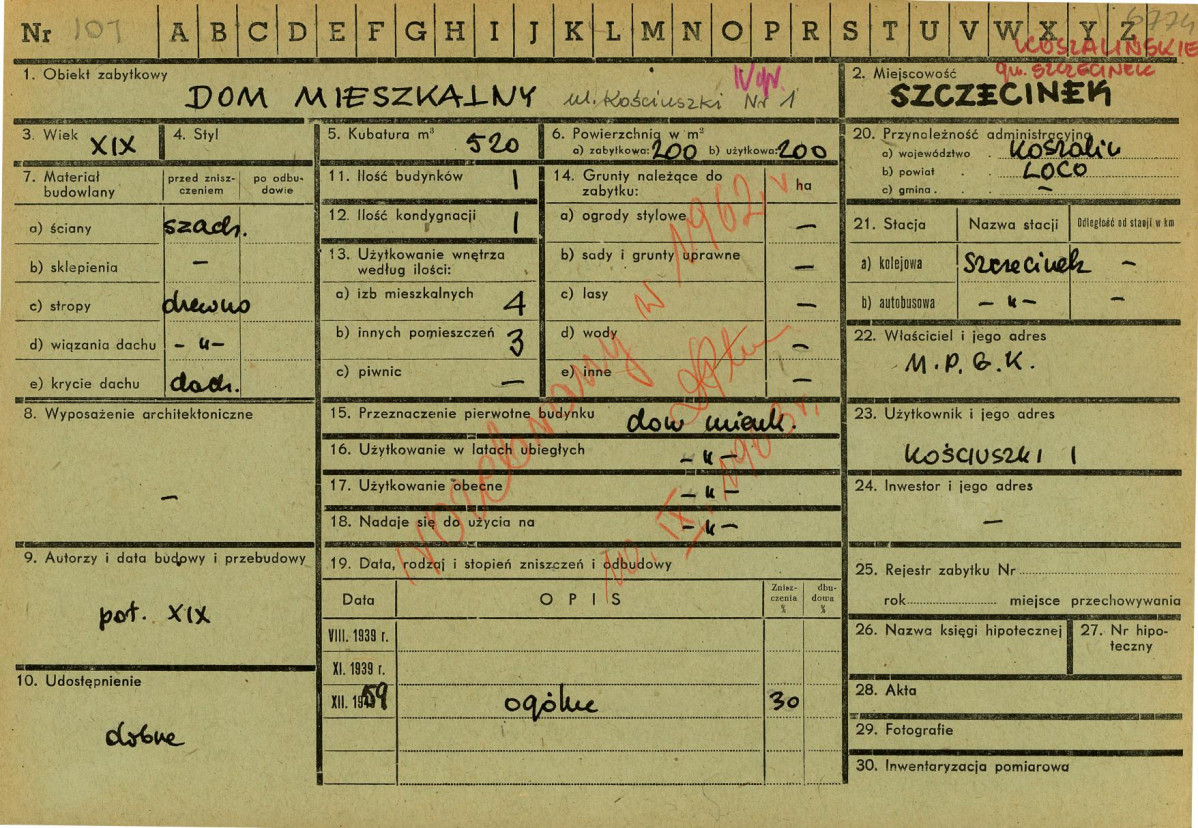 Nr 101 A B C D E F G H I J K L M N O P R S T U V W X Y Z 6774
KOSZALIŃSKIE
gm. SZCZECINEK
1. Obiekt zabytkowy
DOM MIESZKALNY ul. Kościuszki Nr 1
IV gr.
2. Miejscowość
SZCZECINEK
3. Wiek XIX
4. Styl
5. Kubatura m³ 520
6. Powierzchnia w m²
a) zabytkowa: 200 b) użytkowa: 200
7. Materiał budowlany
przed znisz-
czeniem
po odbu-
dowie
a) ściany szach.
b) sklepienia —
c) stropy drewno
d) wiązania dachu — „ —
e) krycie dachu dach.
8. Wyposażenie architektoniczne
—
9. Autorzy i data budowy i przebudowy
poł. XIX
10. Udostępnienie
dobre
11. Ilość budynków 1
12. Ilość kondygnacji 1
13. Użytkowanie wnętrza
według ilości:
a) izb mieszkalnych 4
b) innych pomieszczeń 3
c) piwnic —
14. Grunty należące do
zabytku: ha
a) ogrody stylowe —
b) sady i grunty uprawne —
c) lasy —
d) wody —
e) inne —
15. Przeznaczenie pierwotne budynku dom mieszk.
16. Użytkowanie w latach ubiegłych — „ —
17. Użytkowanie obecne — „ —
18. Nadaje się do użycia na — „ —
19. Data, rodzaj i stopień zniszczeń i odbudowy
Data OPIS
Znisz-
czenia
%
dbu-
dowa
%
VIII. 1939 r.
XI. 1939 r.
XII. 1959 ogólne 30
w 1962 r.
10. IX. 1963 r.
20. Przynależność administracyjna
a) województwo Koszalin
b) powiat LOCO
c) gmina —
21. Stacja Nazwa stacji Odległość od stacji w km
a) kolejowa Szczecinek —
b) autobusowa — „ — —
22. Właściciel i jego adres
M.P.G.K.
23. Użytkownik i jego adres
KOŚCIUSZKI 1
24. Inwestor i jego adres
—
25. Rejestr zabytku Nr
rok miejsce przechowywania
26. Nazwa księgi hipotecznej
27. Nr hipo-
teczny
28. Akta
29. Fotografie
30. Inwentaryzacja pomiarowa